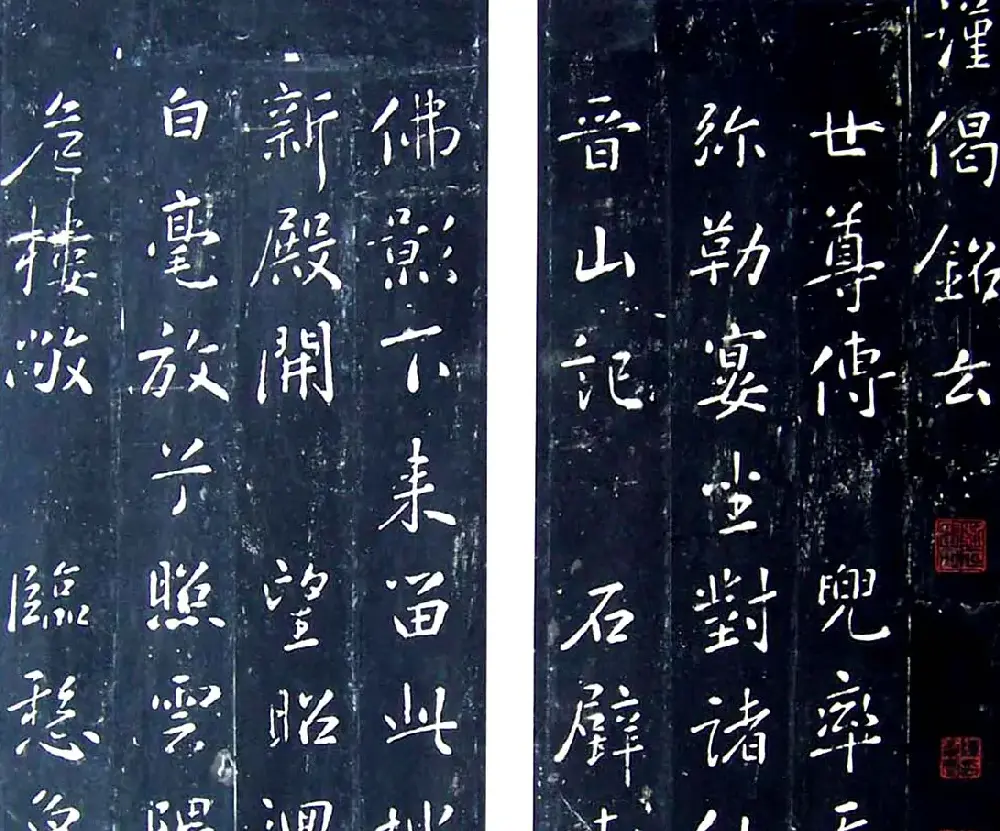 謹偈銘云
世尊傳 兜率
弥勒宴坐對諸
晋山記 石壁
佛影下来留此
新殿開 望昭
白毫放兮照雲
危樓敞 臨